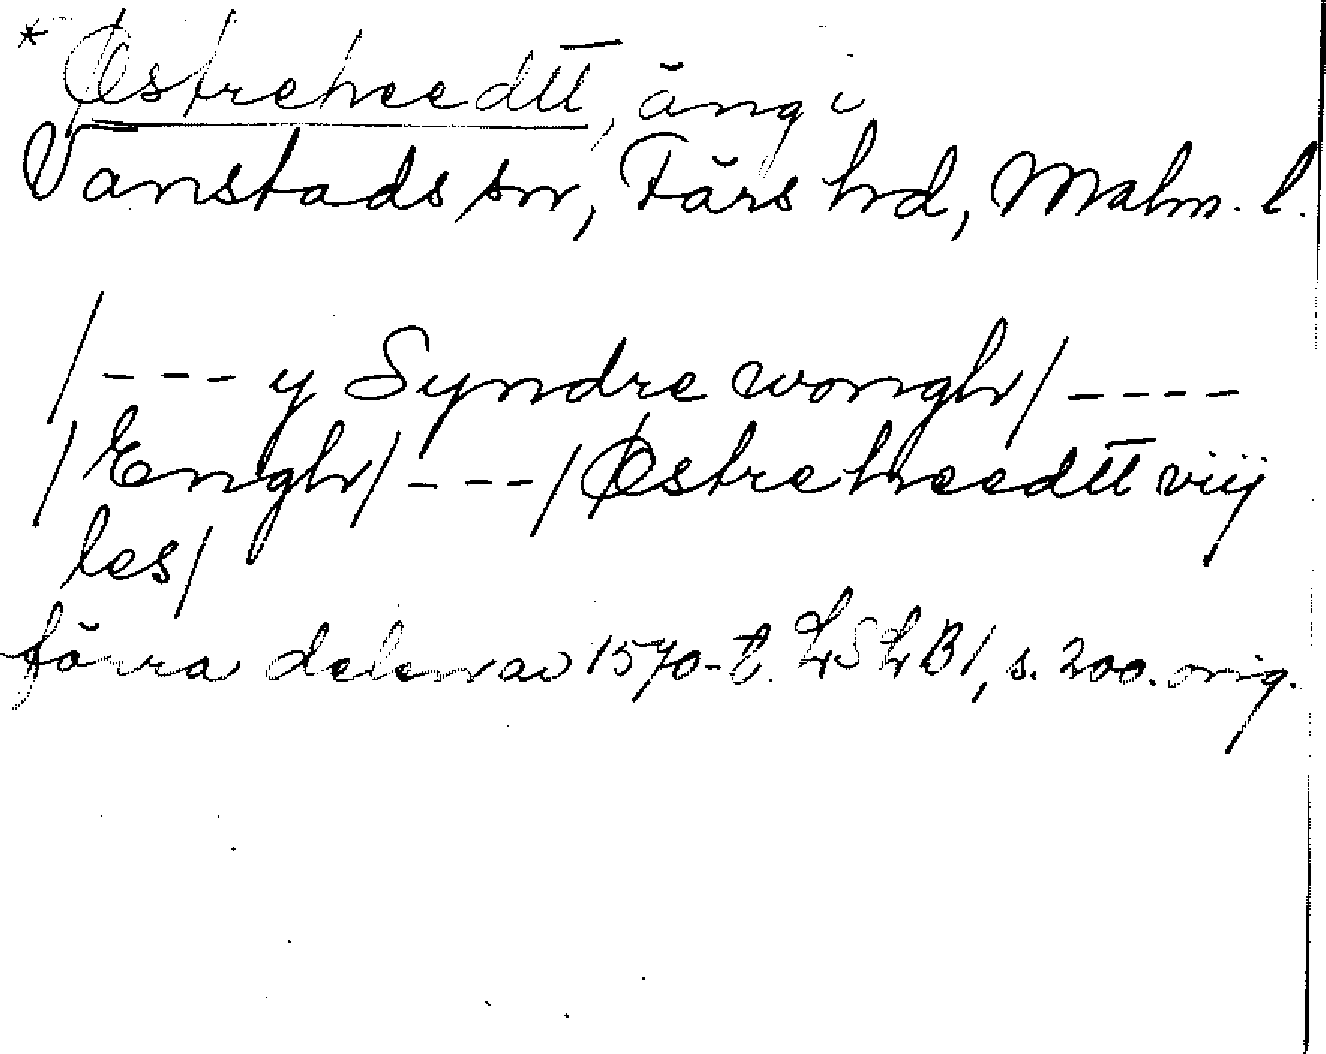 * Østreheedtt, äng i
Vanstads sn, Färs hd, Malm. l.
/--- y Syndre wongh/ ----
/Engh/ ---/Østreheedtt viij
les/
förra delen av 1570-t. LSLB1, s. 200. orig.